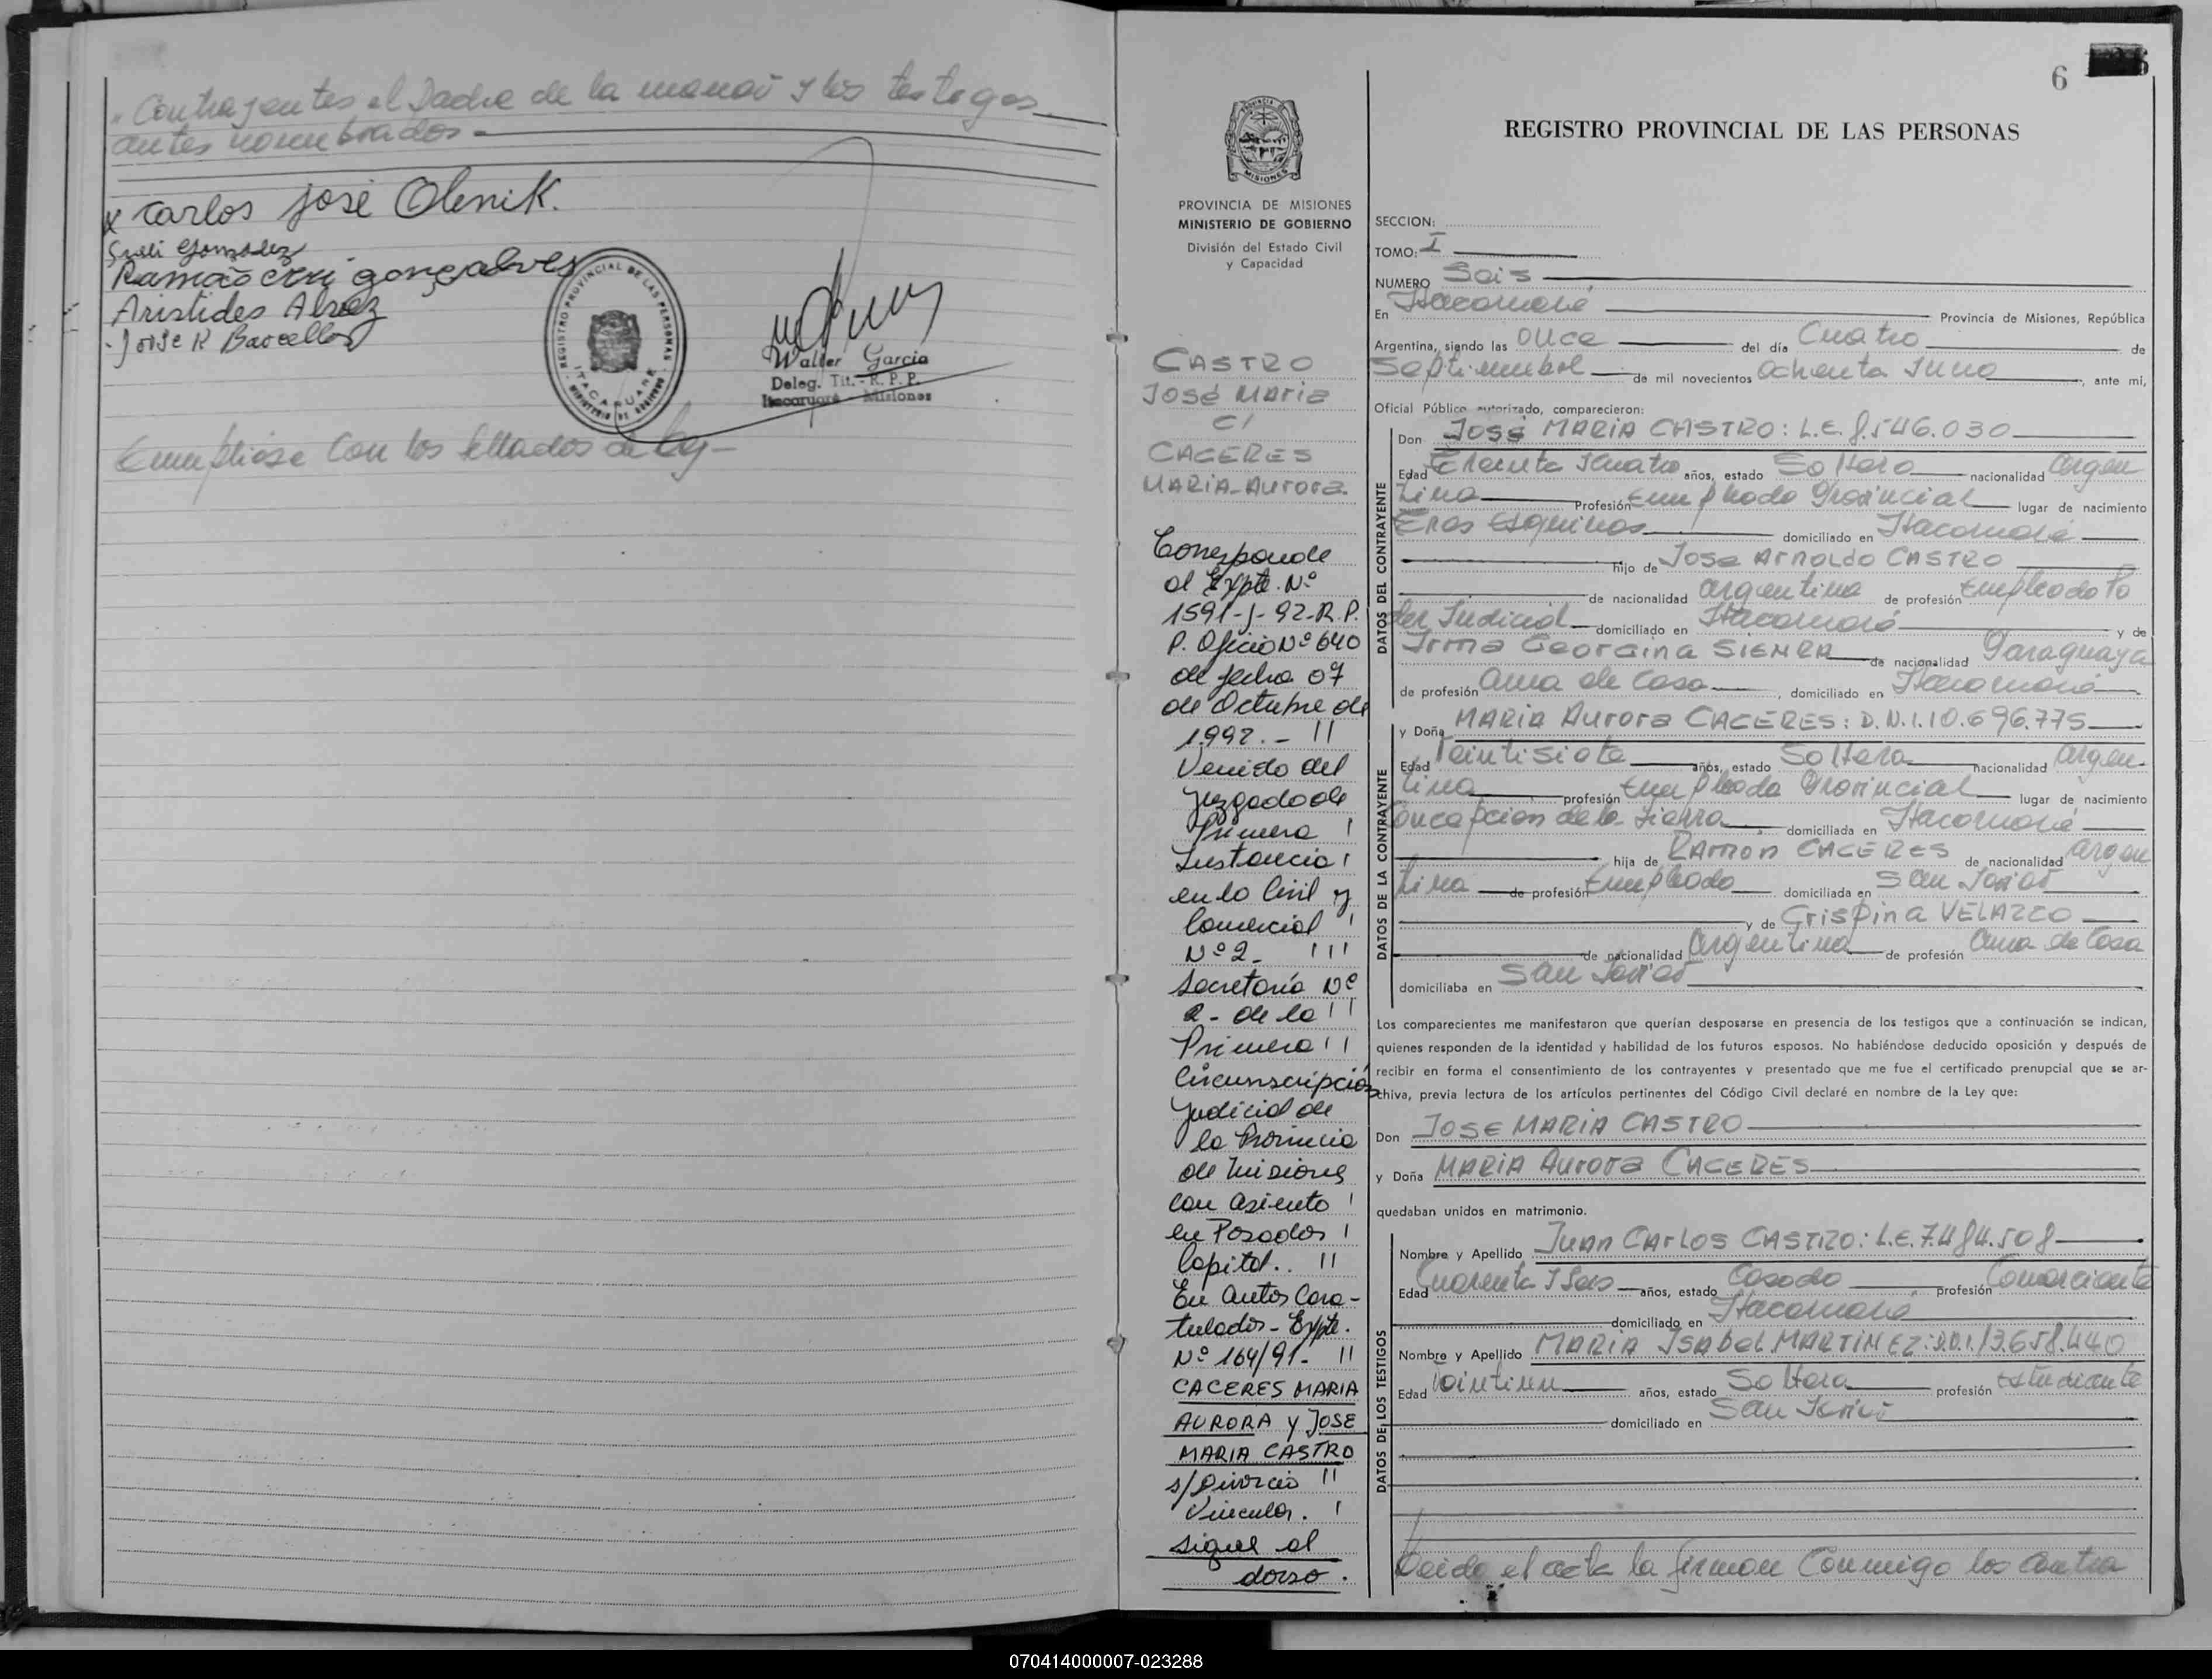 "Contrayentes el Padre de la menor y los testigos
antes nombrados-
x Carlos José Olenik.
Gonzalez
Ramão gonçalves
Aristides Alvez
Jorje R Barcellos
REGISTRO PROVINCIAL DE LAS PERSONAS
ITACARUARE
Walter Garcia
Deleg. Tit. - R. P. P.
Itacaruaré - Misiones
Cumpliose con los sellados de ley-
6
MISIONES
PROVINCIA DE MISIONES
MINISTERIO DE GOBIERNO
División del Estado Civil
y Capacidad
CASTRO
José Maria
C/
CACERES
MARIA-Aurora
Corresponde
al Expte. Nº
1591-J-92-R.P.
P. Oficio Nº 640
de fecha 07
de Octubre de
1992.- //
Venido del
Juzgado de
Primera /
Instancia /
en lo Civil y
Comercial /
Nº 2- ///
Secretaría Nº
2- de la //
Primera //
Circunscripción
Judicial de
la Provincia
de Misiones
con asiento /
en Posadas /
Capital.. //
En Autos Cara-
tulados- Expte.
Nº 164/91- //
CACERES MARIA
AURORA y JOSE
MARIA CASTRO
s/Divorcio //
Vincular. /
Sigue al
dorso.
REGISTRO PROVINCIAL DE LAS PERSONAS
SECCION:
TOMO: I
NUMERO Seis
En Itacaruaré Provincia de Misiones, República
Argentina, siendo las once del día Cuatro de
Septiembre de mil novecientos ochenta y uno, ante mi,
Oficial Público autorizado, comparecieron:
DATOS DEL CONTRAYENTE
Don José MARIA CASTRO: L.E. 8.546.030
Edad Treinta y cuatro años, estado Soltero nacionalidad Argen
tina Profesión Empleado Provincial lugar de nacimiento
Tres Esquinas domiciliado en Itacaruaré
hijo de Jose Arnoldo CASTRO
de nacionalidad argentina de profesión Empleado Po
der Judicial domiciliado en Itacaruaré y de
Irma Georgina SIEMER de nacionalidad Paraguaya
de profesión Ama de Casa, domiciliado en Itacaruaré
DATOS DE LA CONTRAYENTE
y Doña MARIA Aurora CACERES: D.N.I. 10.696.775
Edad Veintisiete años, estado Soltera nacionalidad Argen-
tina profesión Empleada Provincial lugar de nacimiento
Concepcion de la Sierra domiciliada en Itacaruaré
hija de RAMON CACERES de nacionalidad Argen
tina de profesión Empleado domiciliada en San Javier
y de Crispina VELAZCO
de nacionalidad Argentina de profesión Ama de Casa
domiciliaba en San Javier
Los comparecientes me manifestaron que querían desposarse en presencia de los testigos que a continuación se indican,
quienes responden de la identidad y habilidad de los futuros esposos. No habiéndose deducido oposición y después de
recibir en forma el consentimiento de los contrayentes y presentado que me fue el certificado prenupcial que se ar-
chiva, previa lectura de los artículos pertinentes del Código Civil declaré en nombre de la Ley que:
Don JOSE MARIA CASTRO
y Doña MARIA Aurora CACERES
quedaban unidos en matrimonio.
DATOS DE LOS TESTIGOS
Nombre y Apellido Juan CArLos CASTRO: L.E. 7.484.508
Edad Cuarenta y Seis años, estado Casado profesión Comerciante
domiciliado en Itacaruaré
Nombre y Apellido MARIA ISAbeL MARTINEZ: D.N.I. 13.658.440
Edad Veintiun años, estado Soltera profesión Estudiante
domiciliado en San Javier
Leido el acta la firman Conmigo los Contra
070414000007-023288